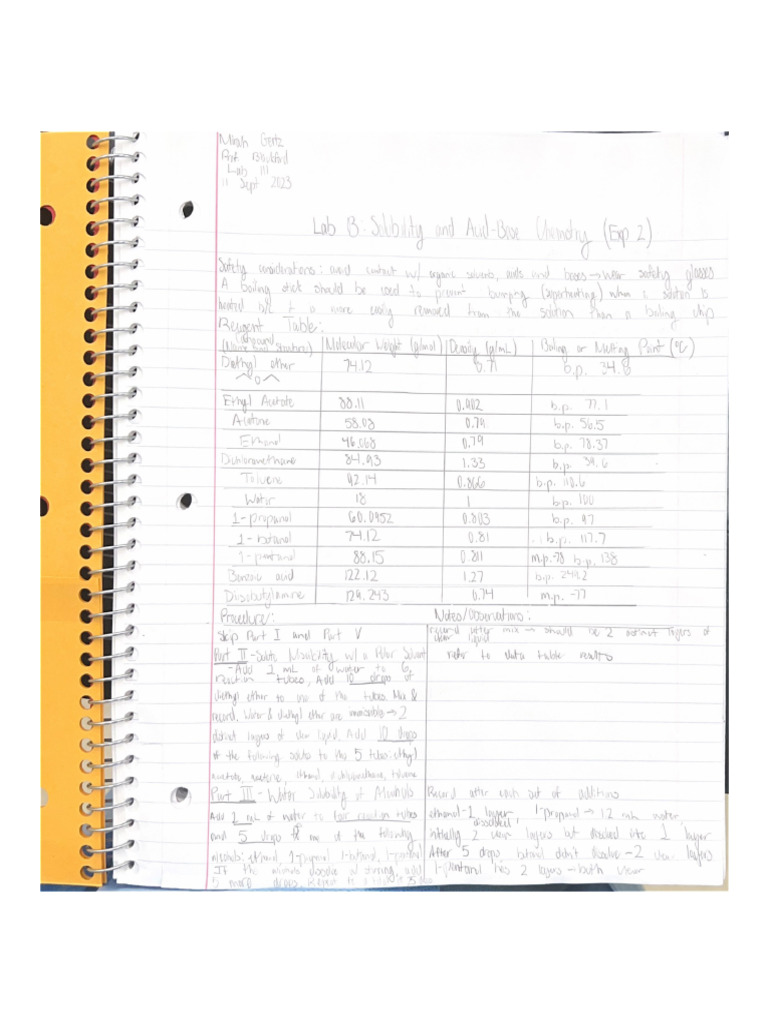 Micah Gertz
Prof. Blackford
Lab 111
11 Sept 2023
Lab B: Solubility and Acid-Base Chemistry (Exp. 2)
Safety considerations: avoid contact w/ organic solvents, acids and bases → wear safety glasses
A boiling stick should be used to prevent bumping (superheating) when a solution is
heated b/c it is more easily removed from the solution than a boiling chip
Reagent Table:
Compound (Name and Structure) Molecular Weight (g/mol) Density (g/mL) Boiling or Melting Point (°C)
Diethyl ether 74.12 0.71 b.p. 34.6
O
Ethyl Acetate 88.11 0.902 b.p. 77.1
Acetone 58.08 0.79 b.p. 56.5
Ethanol 46.068 0.79 b.p. 78.37
Dichloromethane 84.93 1.33 b.p. 39.6
Toluene 92.14 0.866 b.p. 110.6
Water 18 1 b.p. 100
1-propanol 60.0952 0.803 b.p. 97
1-butanol 74.12 0.81 b.p. 117.7
1-pentanol 88.15 0.811 m.p. -78 b.p. 138
Benzoic acid 122.12 1.27 b.p. 249.2
Diisobutylamine 129.243 0.74 m.p. -77
Procedure:
Skip Part I and Part V
Part II - Solute Miscibility w/ a Polar Solvent
- Add 1 mL of water to 6
reaction tubes, Add 10 drops of
diethyl ether to one of the tubes. Mix &
record. Water & diethyl ether are immiscible → 2
distinct layers of clear liquid. Add 10 drops
of the following solutes to the 5 tubes: ethyl
acetate, acetone, ethanol, dichloromethane, toluene
Part III - Water Solubility of Alcohols
Add 1 mL of water to four reaction tubes
and 5 drops of one of the following
alcohols: ethanol, 1-propanol, 1-butanol, 1-pentanol
If the alcohols dissolve w/ stirring, add
5 more drops. Repeat
Notes/Observations:
record after mix → should be 2 distinct layers of
clear liquid
refer to data table results
Record after each set of additions
ethanol-1 layer dissolved, 1-propanol → 12 water
initially 2 clear layers but dissolved into 1 layer
After 5 drops butanol didn't dissolve - 2 clear layers
1-pentanol has 2 layers - both clear